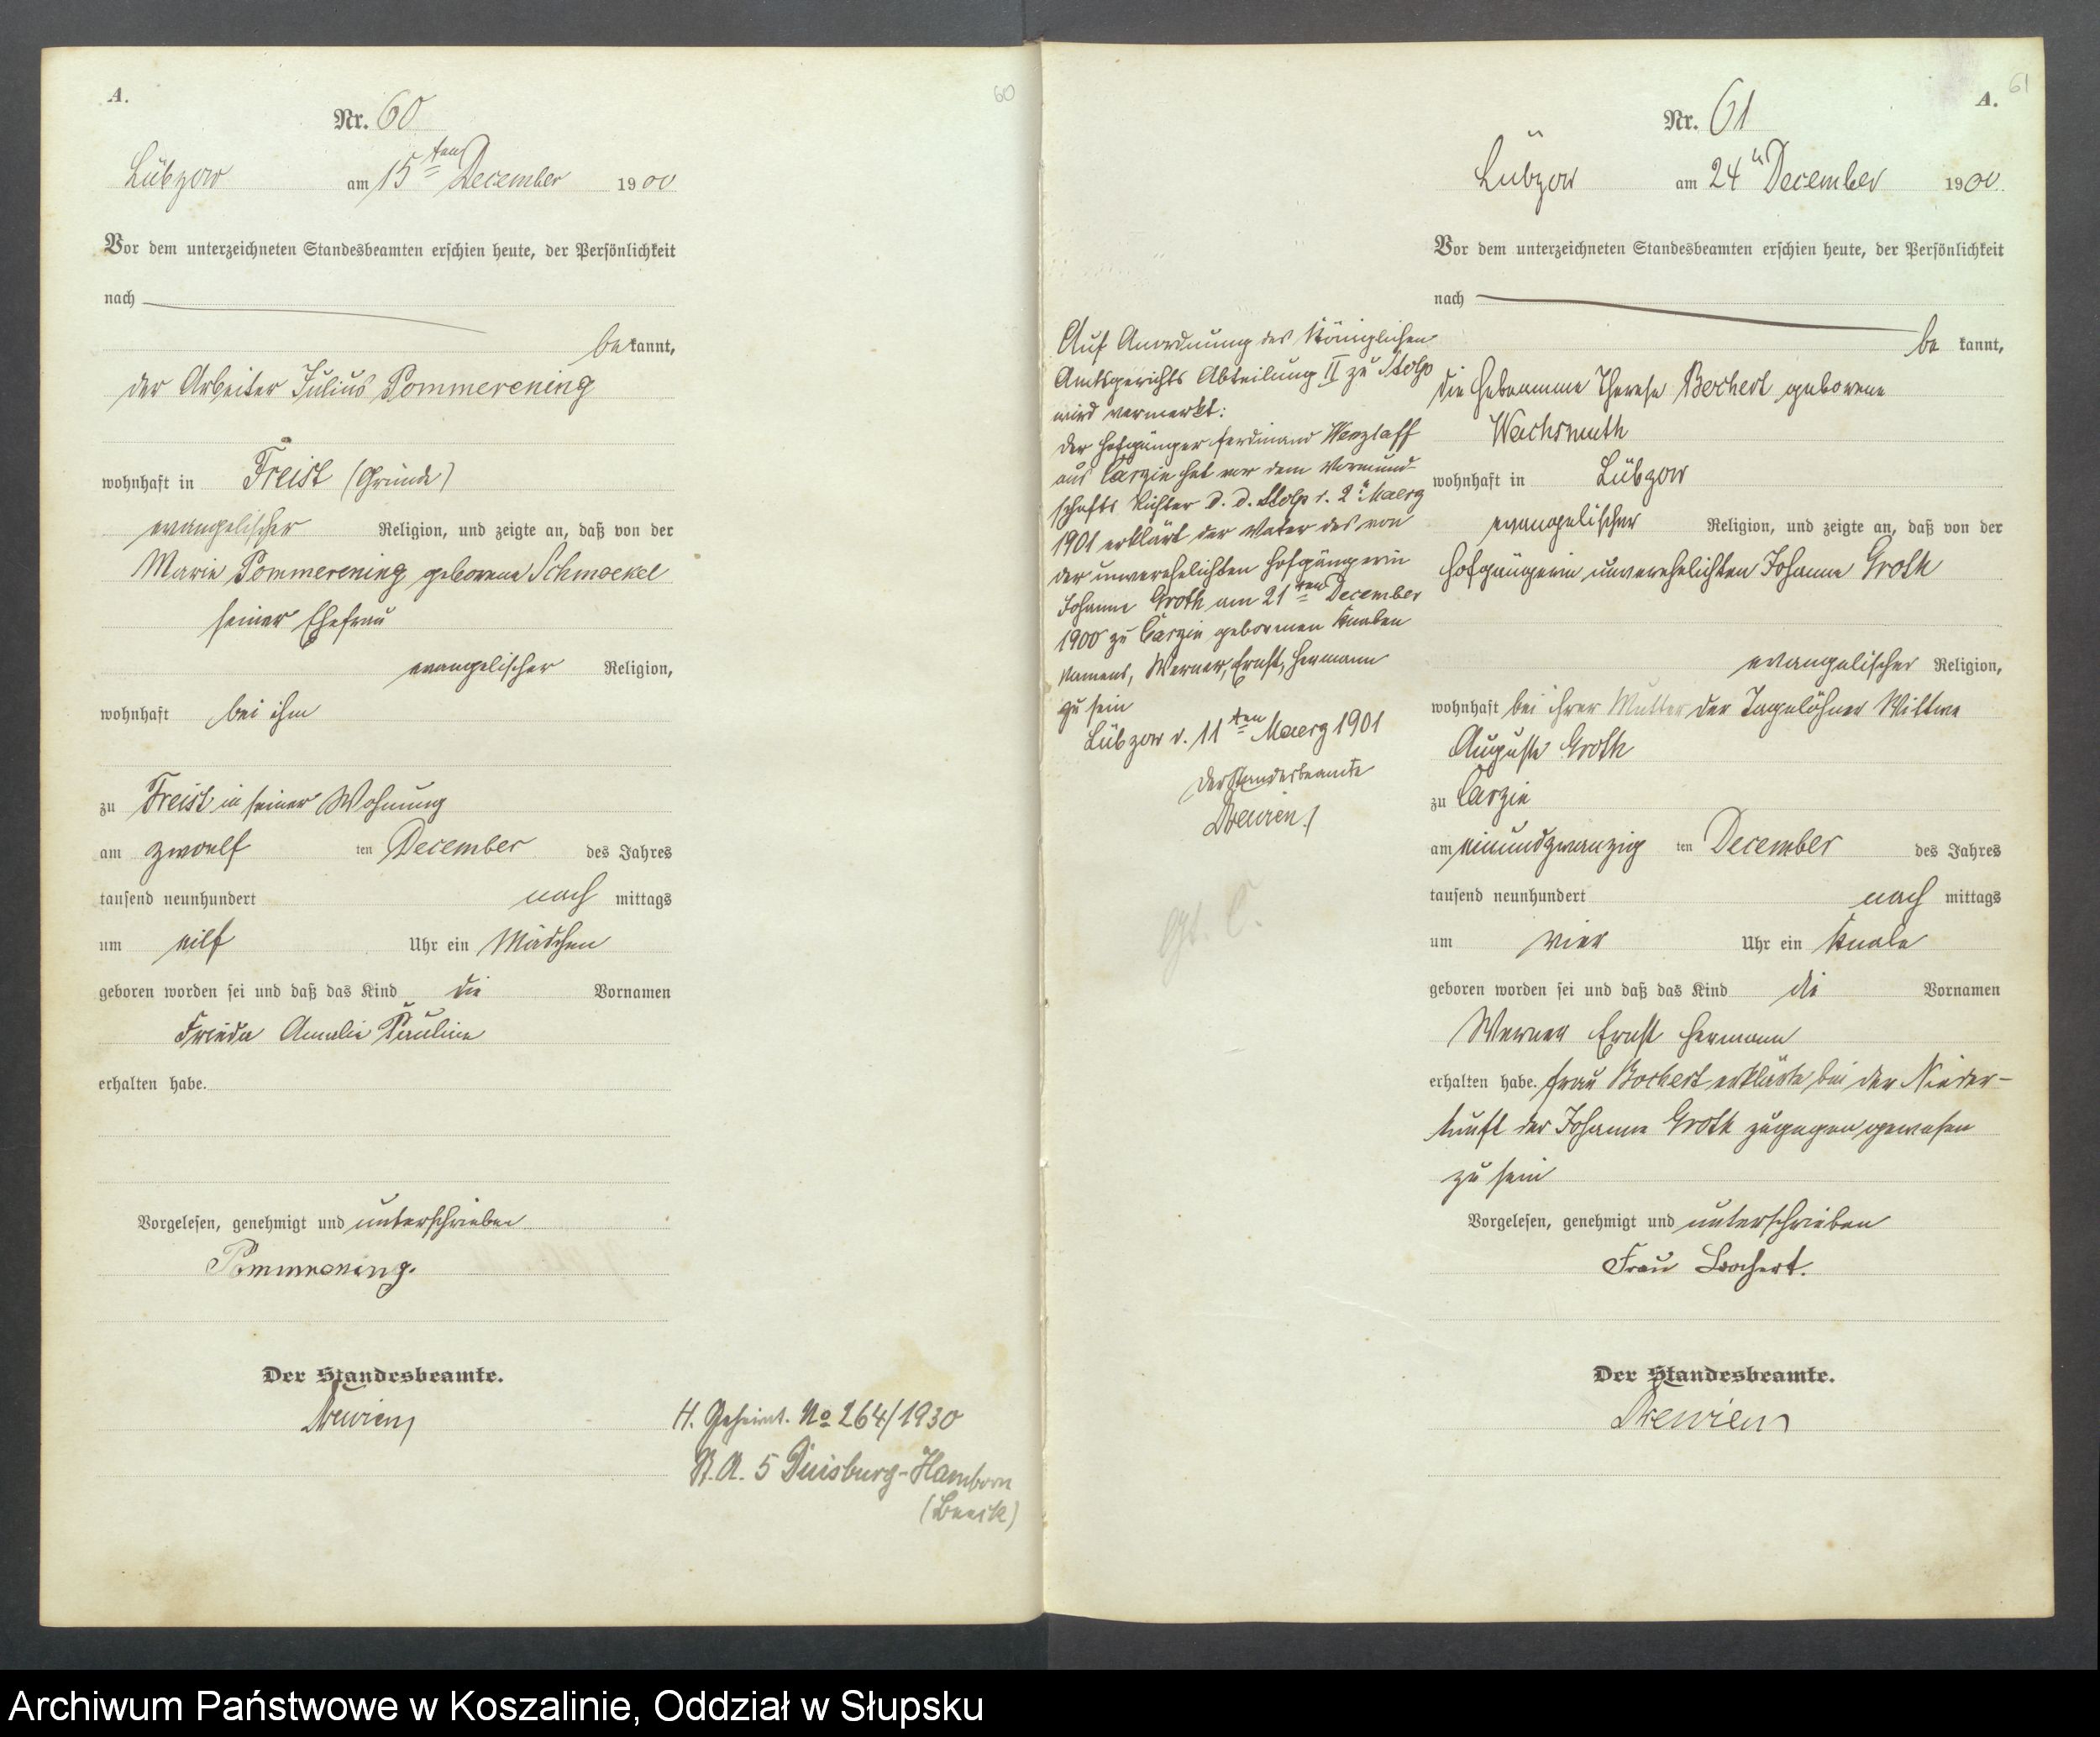 A.
60
Nr. 60
Lübzow am 15ten December 1900
Vor dem unterzeichneten Standesbeamten erschien heute, der Persönlichkeit
nach
be kannt,
der Arbeiter Julius Pommerening
wohnhaft in Freist (Gründe)
evangelischer Religion, und zeigte an, daß von der
Marie Pommerening geborene Schmoekel
seiner Ehefrau
evangelischer Religion,
wohnhaft bei ihm
zu Freist in seiner Wohnung
am zwoelf ten December des Jahres
tausend neunhundert nach mittags
um eilf Uhr ein Mädchen
geboren worden sei und daß das Kind die Vornamen
Frieda Amalie Pauline
erhalten habe.
Vorgelesen, genehmigt und unterschrieben
Pommerening.
Der Standesbeamte.
Drewien
H. Geheirat. No 264/1930
St. A. 5 Duisburg-Hamborn
(Beeck)
A.
61
Nr. 61
Lübzow am 24ten December 1900.
Vor dem unterzeichneten Standesbeamten erschien heute, der Persönlichkeit
nach
be kannt,
die Hebeamme Therese Bochert geborene
Wachsmuth
wohnhaft in Lübzow
evangelischer Religion, und zeigte an, daß von der
Hofgängerin unverehelichten Johanne Groth
evangelischer Religion,
wohnhaft bei ihrer Mutter der Tagelöhner Wittwe
Auguste Groth
zu Carzin
am einundzwanzig ten December des Jahres
tausend neunhundert nach mittags
um vier Uhr ein Knabe
geboren worden sei und daß das Kind die Vornamen
Werner Ernst Hermann
erhalten habe. Frau Bochert erklärte bei der Nieder-
kunft der Johanne Groth zugegen gewesen
zu sein
Vorgelesen, genehmigt und unterschrieben
Frau Bochert.
Der Standesbeamte.
Drewien
Auf Anordnung des Königlichen
Amtsgerichts Abteilung II zu Stolp
wird vermerkt:
Der Hofgänger Ferdinand Wenzlaff
aus Carzin hat vor dem Vormund-
schafts Richter d. d. Stolp d. 2ten Maerz
1901 erklärt der Vater des von
der unverehelichten Hofgängerin
Johanne Groth am 21ten December
1900 zu Carzin geborenen Knaben
Namens, Werner, Ernst, Hermann
zu sein
Lübzow d. 11ten Maerz 1901
Der Standesbeamte
Drewien
Archiwum Państwowe w Koszalinie, Oddział w Słupsku